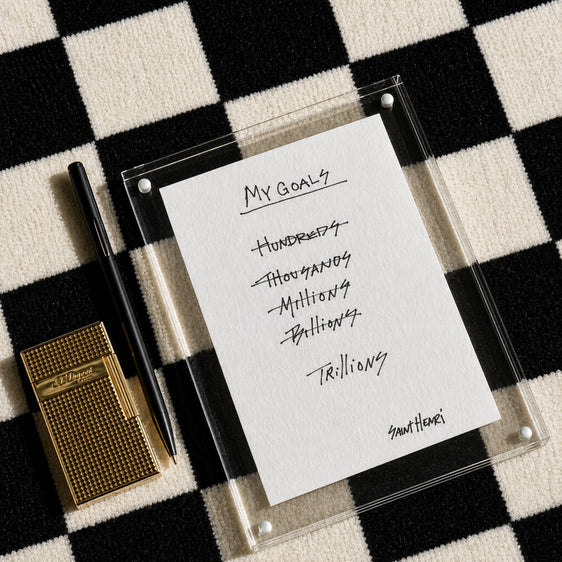 My Goals
Hundreds
Thousands
Millions
Billions
Trillions
Saint Henri
S.T. Dupont